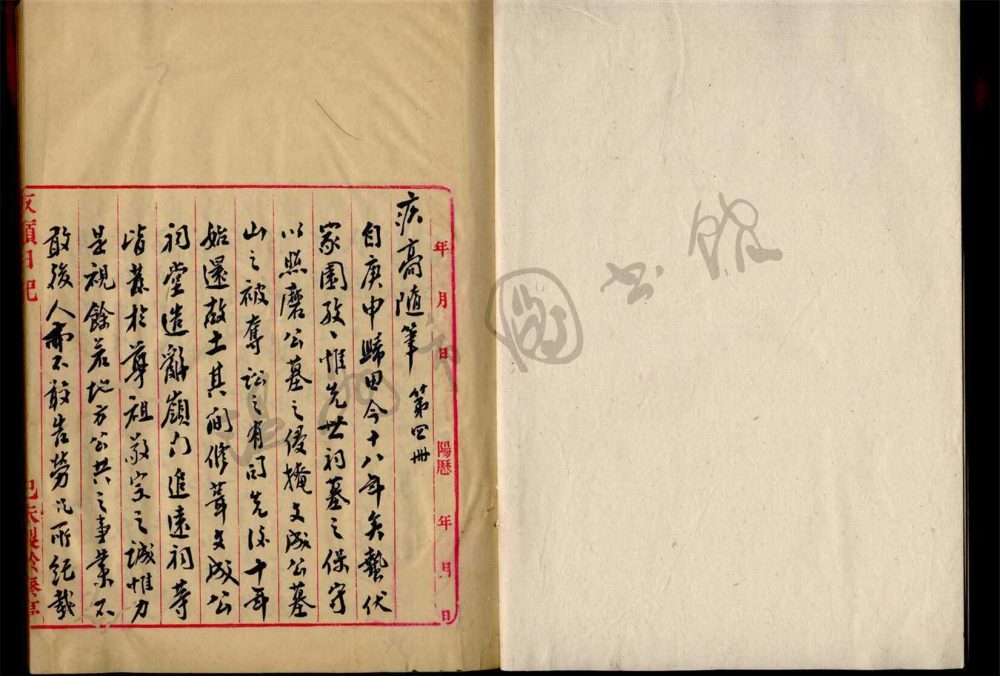 年 月 日 陽曆 年 月 日
疚廎隨筆 第四冊
自庚申歸田今十八年矣蟄伏
家園孜〻惟先世祠墓之保守
以照磨公墓之侵掩文成公墓
山之被奪訟之有司先後十年
始還故土其間修葺文成公
祠堂造辭嶺門追遠祠等
皆基於尊祖敬宗之誠惟力
是視餘若地方公共之事業不
敢後人亦不敢告勞凡所紀載
疚廎日記 己未製於
溫州市圖書館